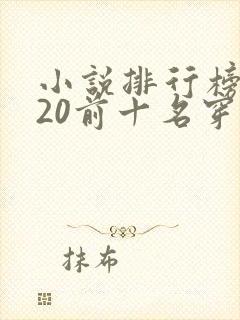 小說排行榜
20前十名穿
抹布